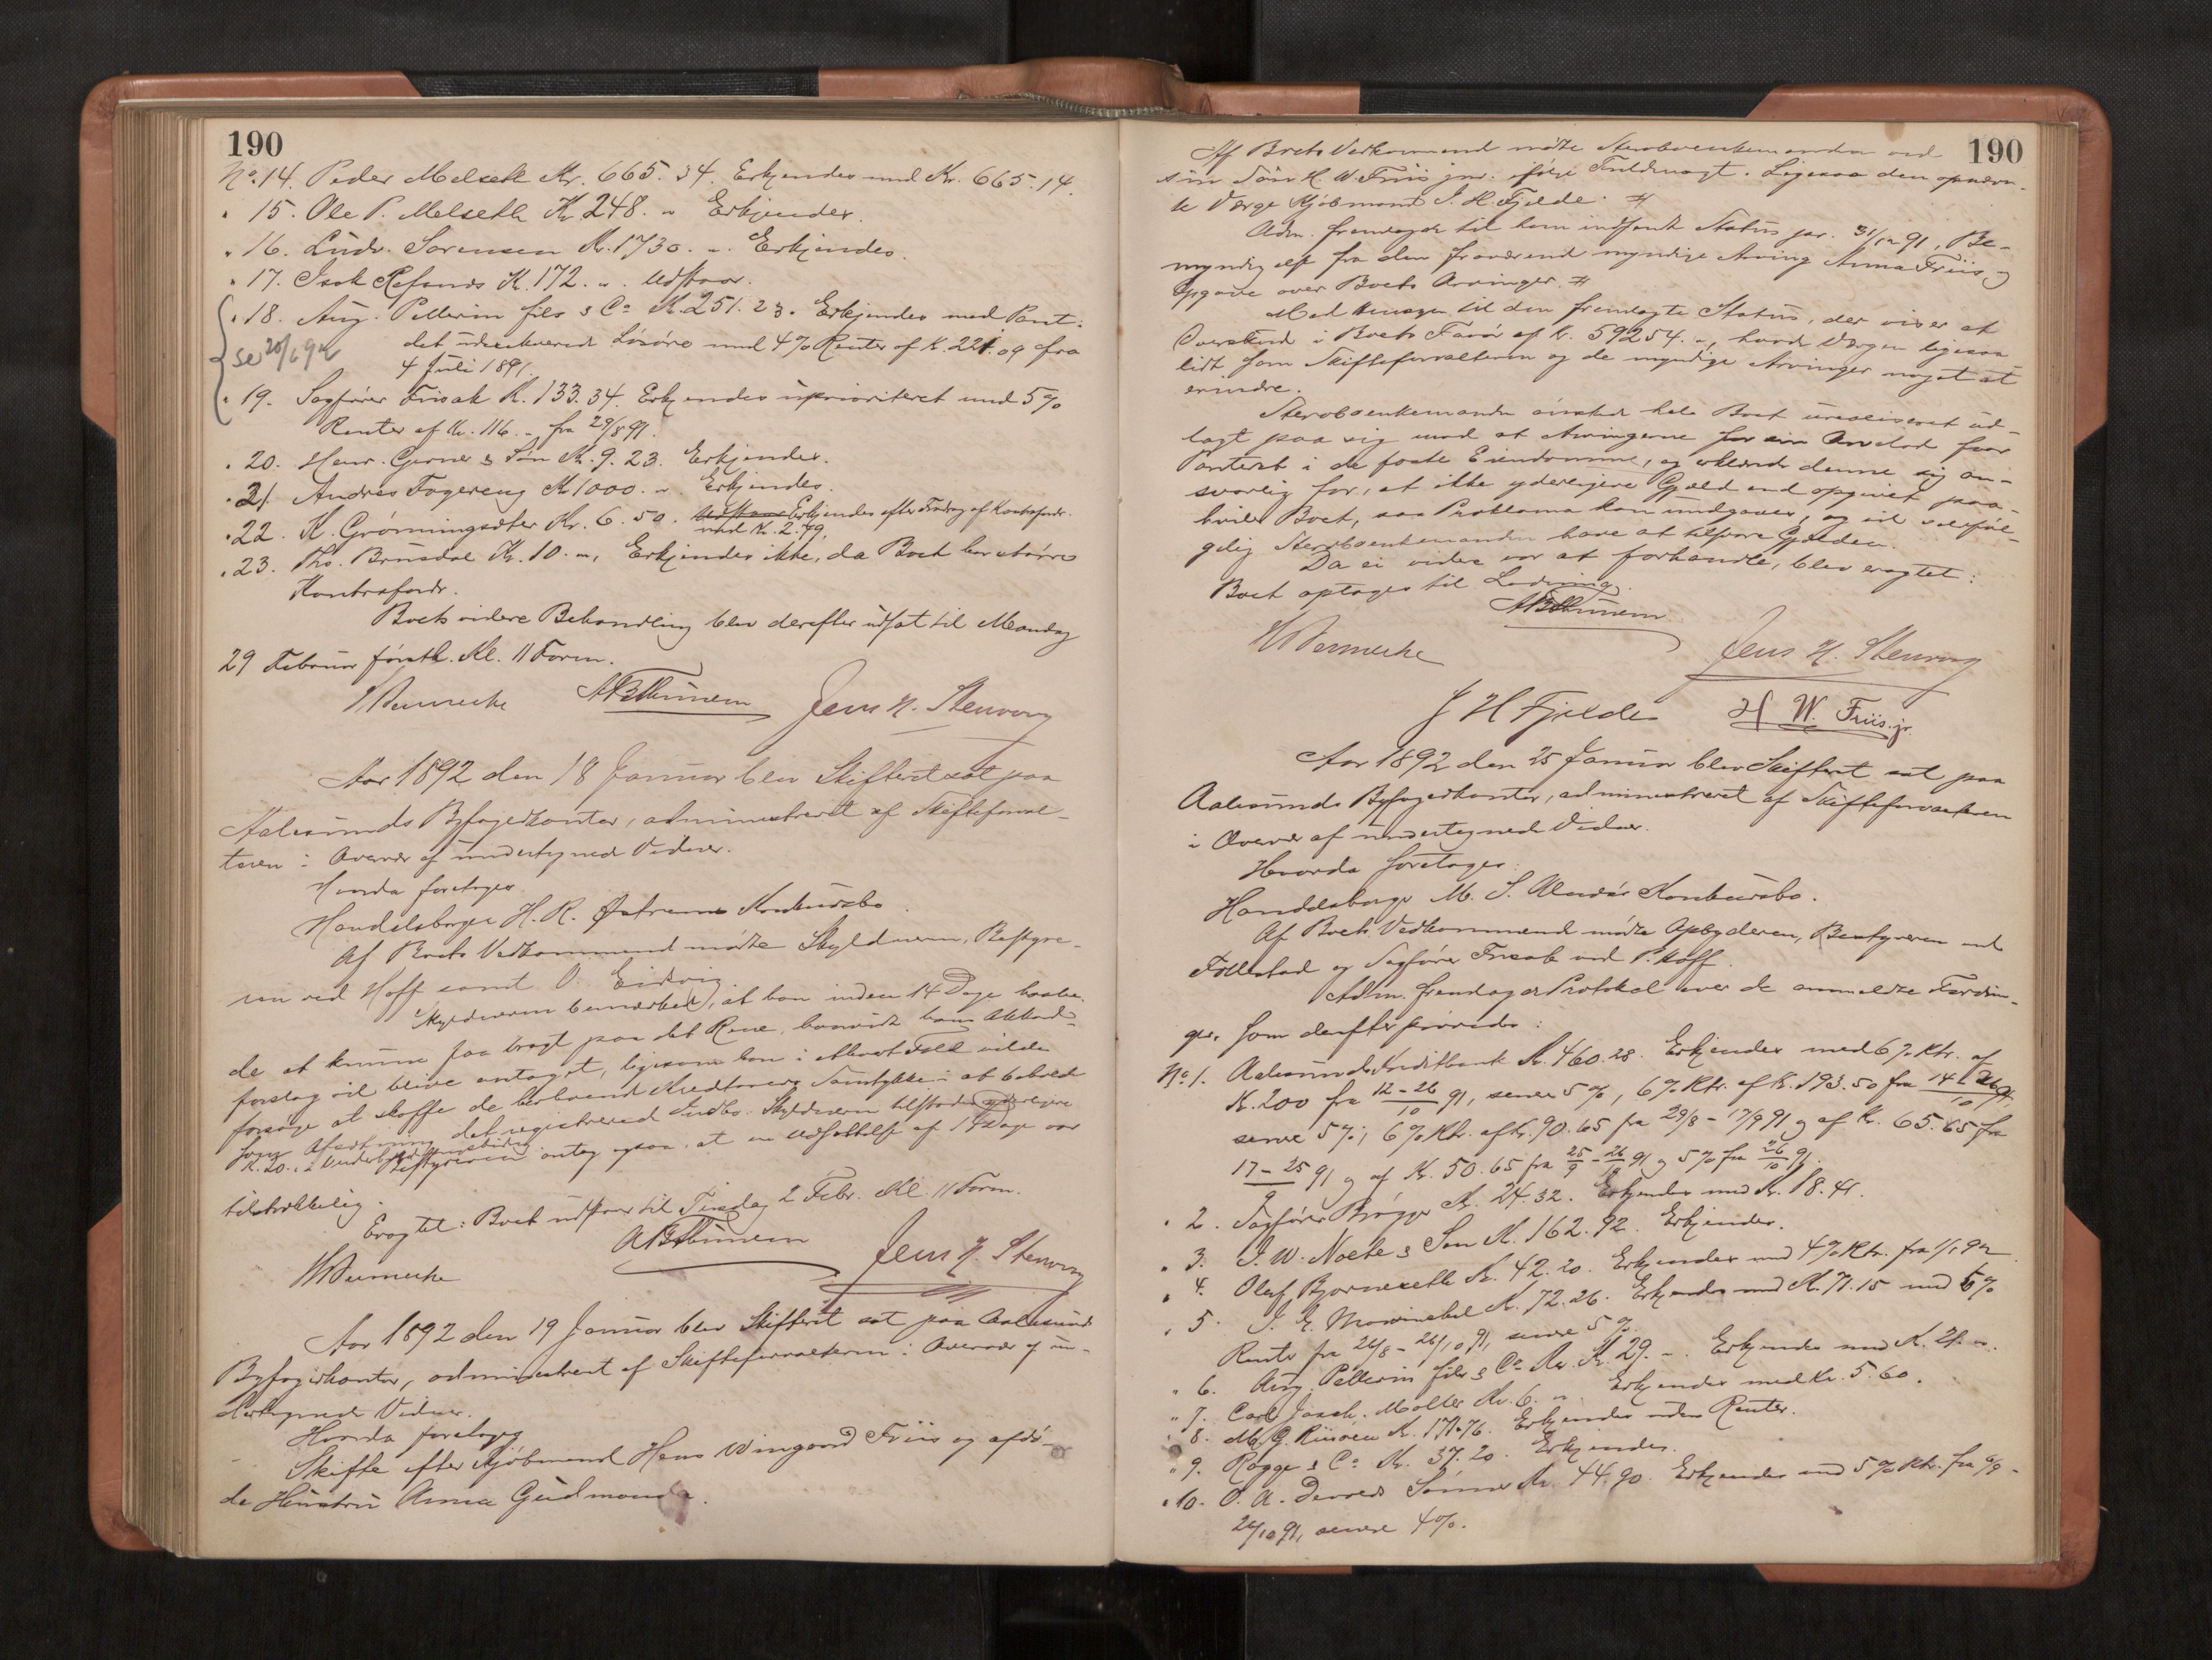 190
No. 14. Peder Melseth Kr. 665.34. Erkjendes med Kr. 665.14.
" 15. Ole P. Melseth Kr 248. " Erkjendes.
" 16. Ludv. Sørensen Kr. 1730. ". Erkjendes.
" 17. Isak Refsnes K. 172. ". Udstaar.
" 18. Aug. Pellerin fils & Co Kr. 251.23. Erkjendes med Pant.
det Løsøre med 4% Renter af K. 221.09 fra
se 20/6 92
4 Juli 1891.
" 19. Sagfører Frisak K. 133.34. Erkjendes uprioriteret med 5%
Renter af Kr. 116. - fra 29/8 91.
" 20. Henr. Gerner & Søn Kr. 9.23. Erkjendes.
" 21. Andreas Fogereng Kr 1000. ". Erkjendes.
" 22. K. Grønningsæter Kr. 6.50. Udstaar Erkjendes efter Fradrag af Kontrafordr.
med Kr. 2.79.
" 23. Ths. Brunsdal Kr. 10. ", Erkjendes ikke, da Boet har større
Kontrafordr.
Boets videre Behandling blev derefter udsat til Mandag
29 Februar førstk. Kl. 11 Form.
Jens N. Stenvang
Aar 1892 den 18 Januar blev Skifteret sat paa
Aalesunds Byfogedkontor, administreret af Skifteforval-
teren i Overvær af undertegnede Vidner.
Hvorda foretoges
Handelsborger H. R. Østrems Konkursbo.
Af Boets Vedkommende mødte Skyldneren, Bestyre-
ren ved Hoff samt O. Eidsvig.
Skyldneren bemærkede, at han inden 14 Dage haabe-
de at kunne faa bragt paa det Rene, hvorvidt hans Akkord-
forslag vil blive antaget, ligesom han i ethvert Fald vilde
forsøge at skaffe de Kreditorers Samtykke i at beholde
det registrerede Indbo. Skyldneren tilstodes yderligere
K. 20. "
Bestyreren antog ogsaa, at en Udsættelse af 14 Dage var
tilstrækkelig.
Eragtet: Boet udstaar til Tirsdag 2 Febr. Kl. 11 Form.
Jens N. Stenvang
Aar 1892 den 19 Januar blev Skifteret sat paa Aalesunds
Byfogedkontor, administreret af Skifteforvalteren i Overvær af un-
dertegnede Vidner.
Hvorda foretoges
Skifte efter Kjøbmand Hans Wingaard Friis og afdø-
de Hustru Anna Gudmunda.
190
Af Boets Vedkommende mødte Stervboenkemanden ved
sin Søn H. W. Friis jnr. ifølge Fuldmagt. Ligesaa den opnævn-
te Værge Kjøbmand J. H. Fjelde. #
Adm. fremlagde til ham indsendt Status pr. 31/12 91, Be-
myndigelse fra den fraværende myndige Arving Anna Friis, og
Opgave over Boets Arvinger. #
Med Hensyn til den fremlagte Status, der viser et
Overskud i Boets Favør af K. 59254. ", havde Værgen ligesaa
lidt som Skifteforvalteren og de myndige Arvinger noget at
erindre.
Stervboenkemanden ønsked hele Boet urealiseret ud-
lagt paa sig mod at Arvingerne for sin Arvelod faar
Panteret i de faste Eiendomme, og erklærede denne sig an-
svarlig for, at ikke yderligere Gjæld end opgivet paa-
hviler Boet, saa Proklama kan undgaaes, og vil selvføl-
gelig Stervboenkemanden have at tilsvare Gjælden.
Da ei videre var at forhandle, blev eragtet:
Boet optages til Lodning.
Jens N. Stenvang
J H Fjelde H. W. Friis. jr.
Aar 1892 den 25 Januar blev Skifteret sat paa
Aalesunds Byfogedkontor, administreret af Skifteforvalteren
i Overvær af undertegnede Vidner.
Hvorda foretoges:
Handelsborger M. S. Konkursbo.
Af Boets Vedkommende mødte Opbyderen, Bestyreren ved
Follestad og Sagfører Frisak ved P. Hoff.
Adm. fremlagde Protokol over de anmeldte Fordrin-
ger, som derefter prøvedes:
No. 1. Aalesunds Kreditbank Kr. 460.28. Erkjendes med 6% Rtr. af
K. 200 fra 12-26/10 91, senere 5%, 6% Rtr. af K. 193.50 fra 14-26/10 91,
senere 5%; 6% Rtr. af Kr. 90.65 fra 29/8 - 17/9 91 og af Kr. 65.65 fra
17-25/9 91 og af Kr. 50.65 fra 25/9 - 26/10 91 og 5% fra 26/10 91.
" 2. Sagfører Brøgger K. 24.32. Erkjendes med Kr. 18.41.
" 3. I. W. & Søn K. 162.92. Erkjendes.
" 4. Oluf Bjørneseth Kr. 42.20. Erkjendes med 4% Rtr. fra 1/1 92
" 5. I. E. Mowinckel K. 72.26. Erkjendes med K. 71.15 med 6%
Rente fra 24/8 - 26/10 91, senere 5%.
" 6. Aug. Pellerin fils & Co K. 29. -. Erkjendes med K. 21. ".
" 7. Carl Joach. Møller Kr. 6. ". Erkjendes med Kr. 5.60.
" 8. M. G. K. 171.76. Erkjendes uden Renter.
" 9. Rogge & Co. Kr. 37.20. Erkjendes.
" 10. O. A. Devolds Sønner Kr. 44.90. Erkjendes med 5% Rtr. fra 9/9 -
26/10 91, senere 4%.